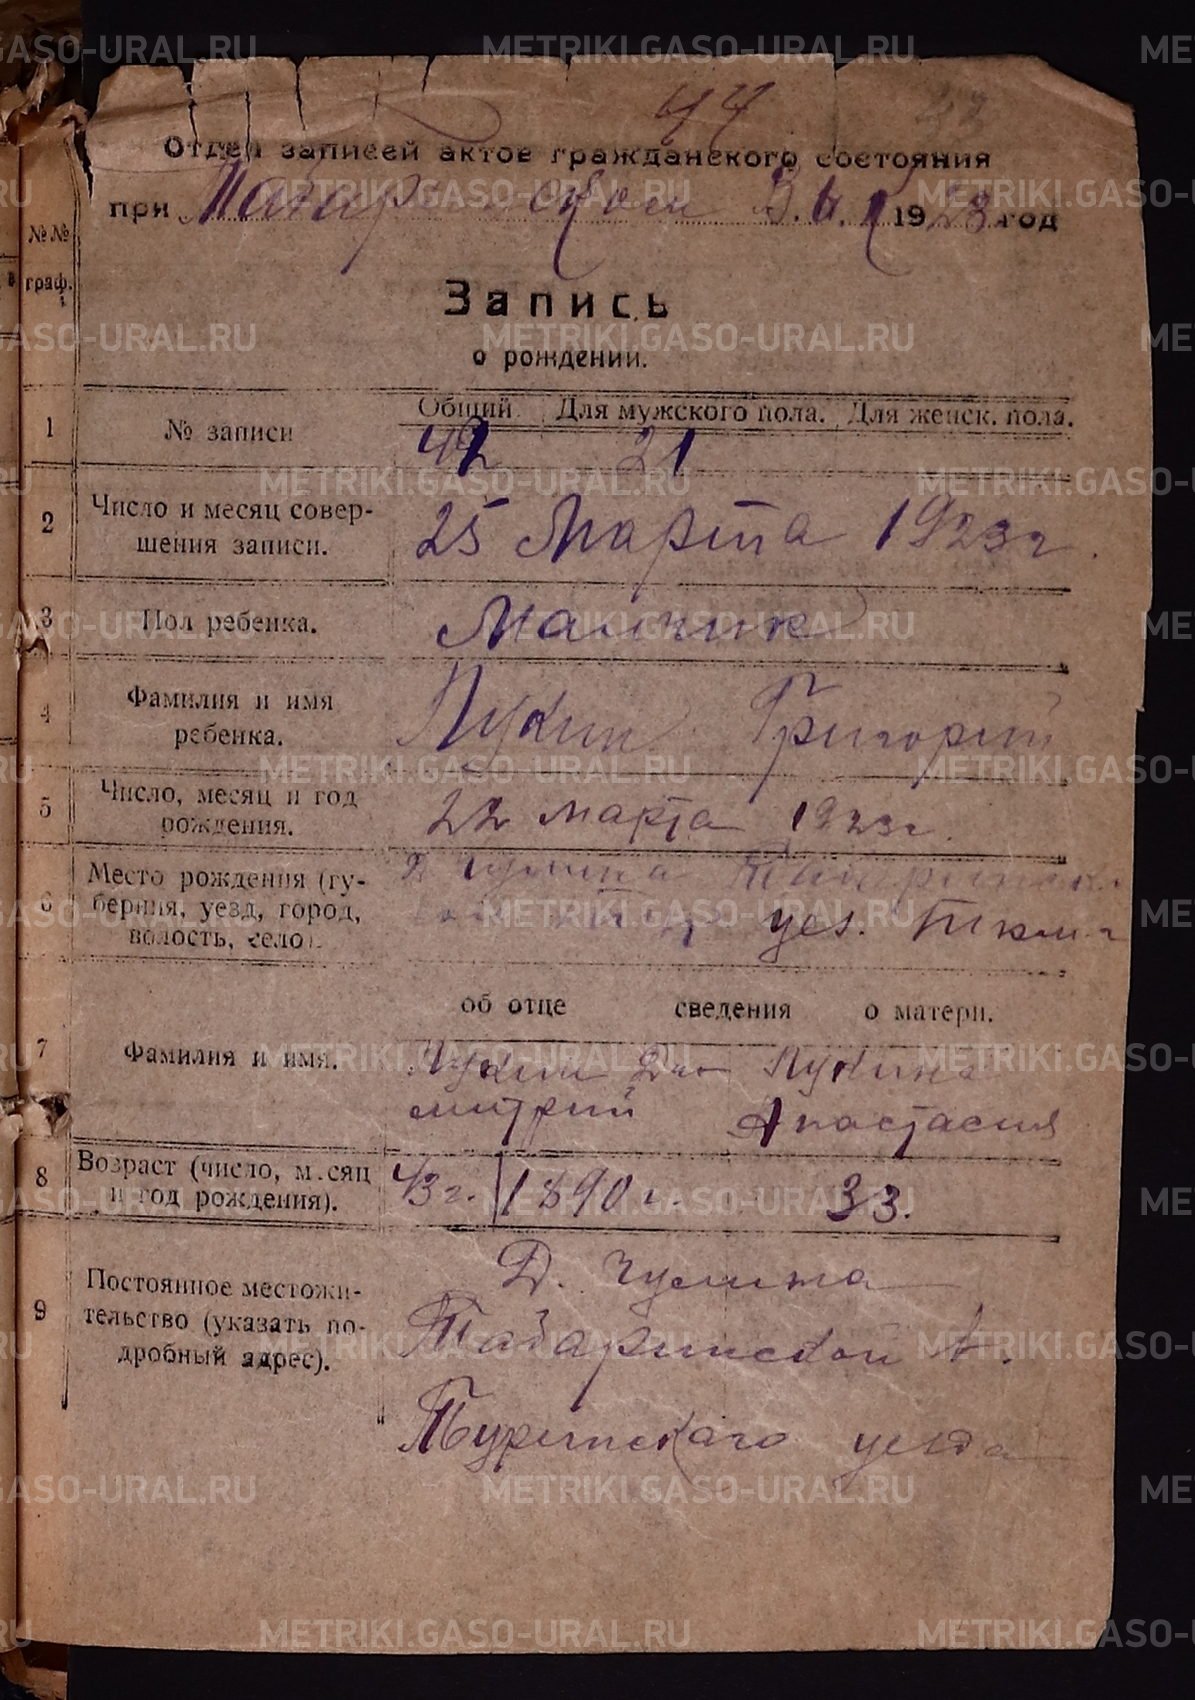 44
Отдел записей актов гражданского состояния
при Табаринском В.И.К 1923 год
№№ граф.
Запись
о рождении.
Общий. Для мужского пола. Для женск. пола.
1 № записи 42 21
2 Число и месяц совер-
шения записи. 25 Марта 1923 г.
3 Пол ребенка. Мальчик
4 Фамилия и имя
ребенка. Лукин Григорий
5 Число, месяц и год
рождения. 22 марта 1923 г.
6 Место рождения (гу-
берния, уезд, город,
волость, село). уез.
об отце сведения о матери.
7 Фамилия и имя. Лукин Ди- Лукина
митрий Анастасия
8 Возраст (число, месяц
и год рождения). 43 г. 1890 г. 33.
9 Постоянное местожи-
тельство (указать по-
дробный адрес).
Д.
Табаринской в.
Туринскаго уезда
METRIKI.GASO-URAL.RU